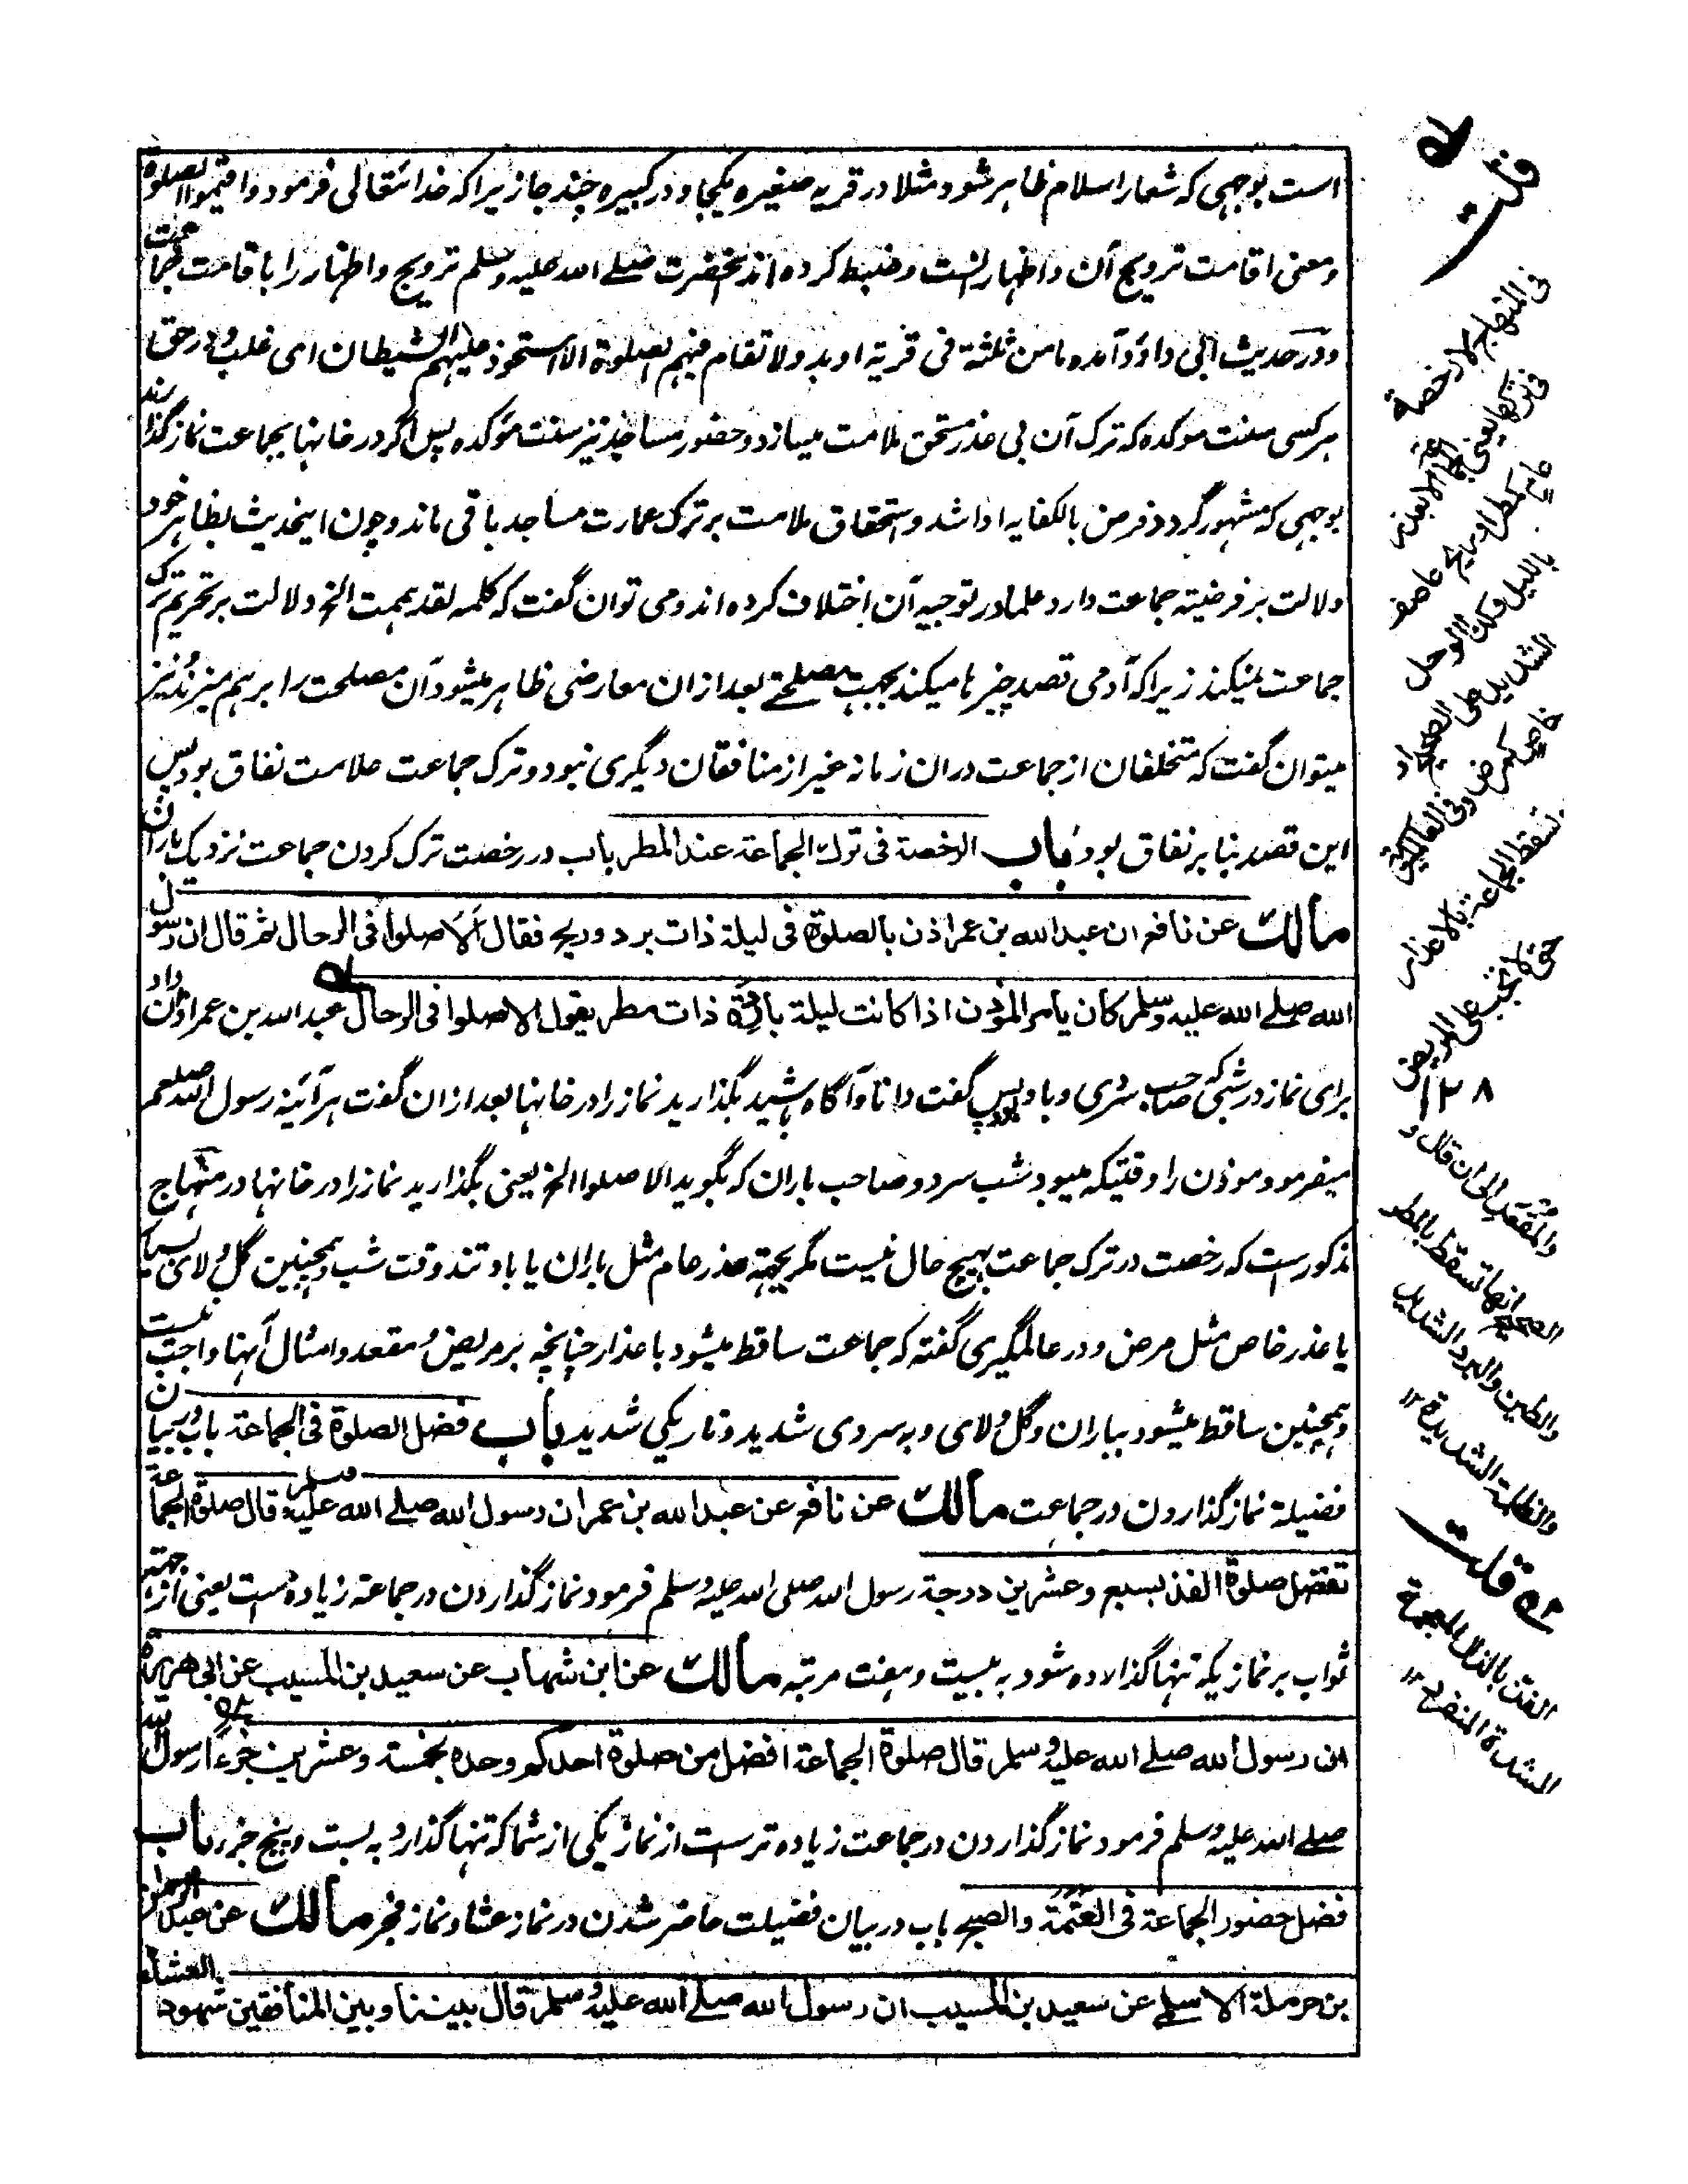 است بوجهی که شعار اسلام ظاهر شود مثلا در قریه صغیره یکجا و در کبیره چند جا زیرا که خدا تعالی فرمود و اقیموا الصلوة
و معنی اقامت ترویج آن و اظهار است و ضبط کرده اند آنحضرت صلے الله علیه وسلم ترویج و اظهار را باقامت جماعت
و در حدیث ابی داؤد آمده ما من ثلثة فی قریة او بدو لا تقام فیهم الصلوة الا استحوذ علیهم الشیطان ای غلب و در حق
هر کسی سنت موکده که ترک آن بی عذر مستحق ملامت میسازد و حضور مساجد نیز سنت مؤکده پس اگر در خانها بجماعت نماز گذارند
بوجهی که مشهور گردد فرض بالکفایه ادا شد و استحقاق ملامت بر ترک عمارت مساجد باقی ماند و چون اینحدیث بظاهر خود
دلالت بر فرضیته جماعت دارد علما در توجیه آن اختلاف کرده اند و می توان گفت که کلمه لقد هممت الخ دلالت بر تحریم ترک
جماعت نمیکند زیرا که آدمی قصد چیز ها میکند بجهت مصلحتے بعد ازان معارضی ظاهر میشود آن مصلحت را برهم میزند و نیز
میتوان گفت که متخلفان از جماعت دران زمانه غیر از منافقان دیگری نبود و ترک جماعت علامت نفاق بود پس
این قصد بنا بر نفاق بود باب الرخصة فی ترك الجماعة عند المطر باب در رخصت ترک کردن جماعت نزدیک باران
مالك عن نافع ان عبد الله بن عمر اذن بالصلوة فی لیلة ذات برد وریح فقال اَلَا صلوا فی الرحال ثم قال ان رسول
الله صلے الله علیه وسلم کان یأمر المؤذن اذا کانت لیلة باردة ذات مطر یقول الا صلوا فی الرحال عبد الله بن عمر اذان داد
برای نماز در شبی که صاحب سردی و باد بود پس گفت دانا و آگاه باشید بگذارید نماز را در خانها بعد ازان گفت هر آئینه رسول الله صلعم
میفرمود موذن را وقتیکه میبود شب سرد و صاحب باران که بگوید الا صلوا الخ یعنی بگذارید نماز را در خانها در منهاج
مذکور است که رخصت در ترک جماعت بهیچ حال نیست مگر بجهة عذر عام مثل باران یا باد تند وقت شب و همچنین گل و لای بسیار
یا عذر خاص مثل مرض و در عالمگیری گفته که جماعت ساقط میشود باعذار چنانچه بر مریض و مقعد و امثال آنها واجب نیست
و همچنین ساقط میشود بباران و گل و لای و به سردی شدید و تاریکی شدید باب فضل الصلوة فی الجماعة باب در بیان
فضیلة نماز گذاردن در جماعت مالك عن نافع عن عبد الله بن عمر ان رسول الله صلے الله علیه وسلم قال صلوة الجماعة
تفضل صلوة الفذ بسبع وعشرین درجة رسول الله صلی الله علیه وسلم فرمود نماز گذاردن در جماعة زیاده است یعنی از جهة
ثواب بر نمازیکه تنها گذارده شود به بیست و هفت مرتبه مالك عن ابن شهاب عن سعید بن المسیب عن ابی هریرة
ان رسول الله صلے الله علیه وسلم قال صلوة الجماعة افضل من صلوة احدکم وحده بخمسة وعشرین جزءًا رسول الله
صلے الله علیه وسلم فرمود نماز گذاردن در جماعت زیاده تر است از نماز یکی از شما که تنها گذارد به بست و پنج جزء باب
فضل حضور الجماعة فی العتمة والصبح باب در بیان فضیلت حاضر شدن در نماز عشا و نماز فجر مالك عن عبد الرحمن
بن حرملة الاسلمے عن سعید بن المسیب ان رسول الله صلے الله علیه وسلم قال بیننا وبین المنافقین شهود العشاء
له قلت
فی المنهاج لا رخصة
فی ترکها یعنی الجماعة الا بعذر
عام کمطر او ریح عاصف
باللیل وکذا الوحل
الشدید علی الصحیح او
خاص کمرض وفی العالمگیریة
تسقط الجماعة بالاعذار
حتی لا تجب علی المریض
والمقعد الی ان قال و
الصحیح انها تسقط بالمطر
والطین والبرد الشدید
والظلمة الشدیدة ۱۲
۱۲۸
قلت
الفذ بالذال المعجمة
المشددة المنفرد ۱۲